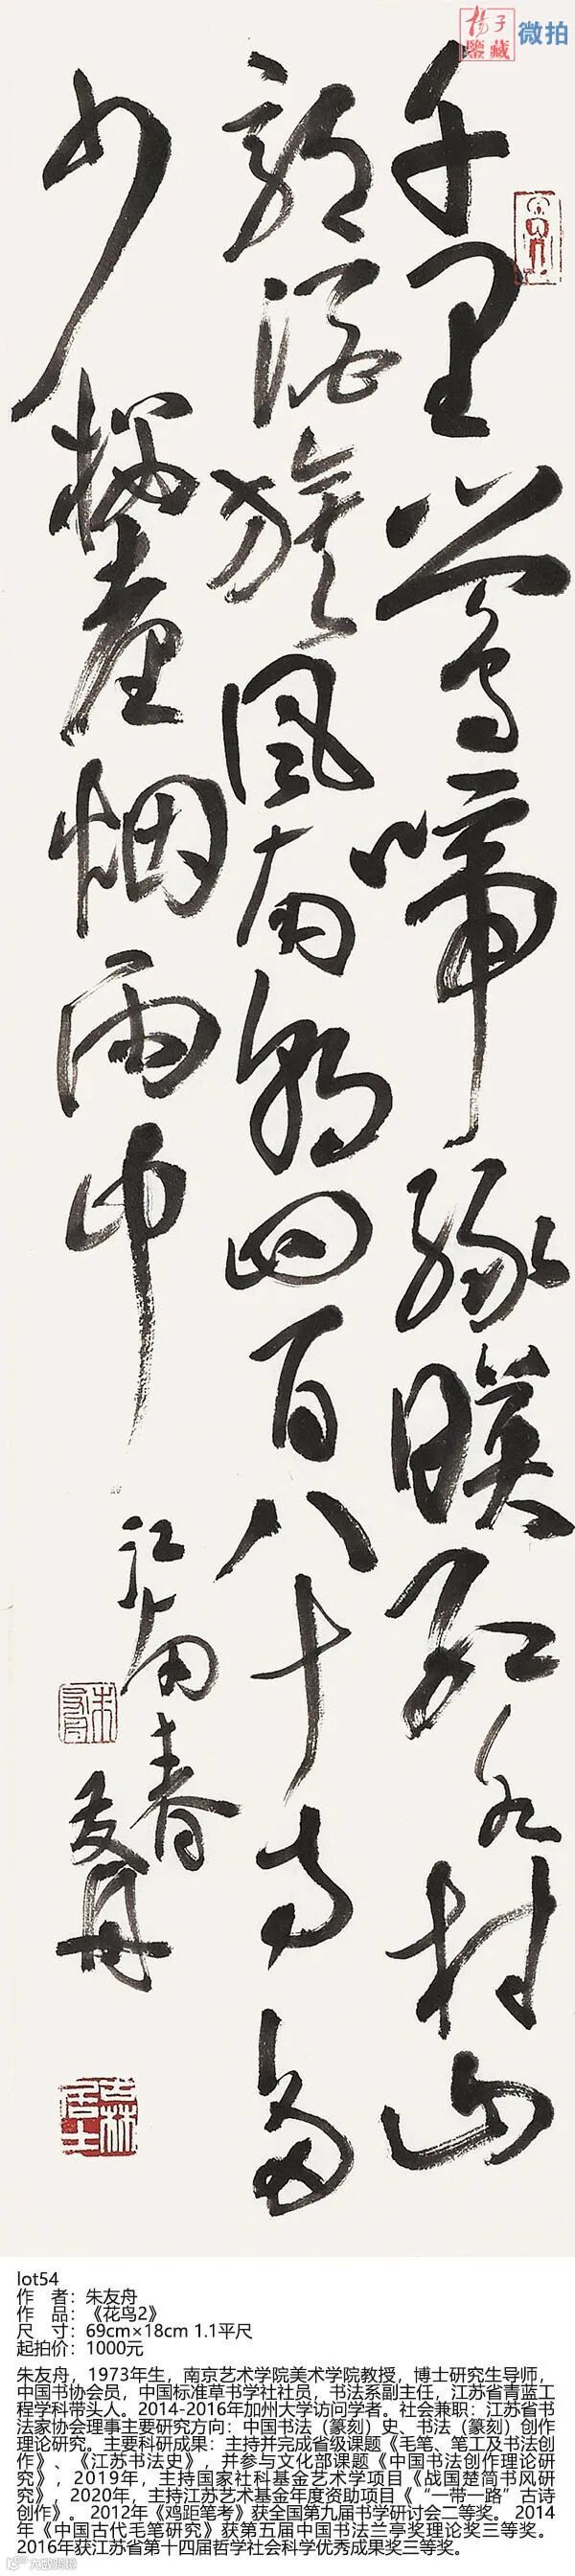 揚子
鑒藏
微拍
千里莺啼緑暎红水村山
郭酒旗风南朝四百八十寺多
少楼臺烟雨中
江南春
友舟
lot54
作 者：朱友舟
作 品：《花鸟2》
尺 寸：69cm×18cm 1.1平尺
起拍价：1000元
朱友舟，1973年生，南京艺术学院美术学院教授，博士研究生导师，
中国书协会员，中国标准草书学社社员，书法系副主任，江苏省青蓝工
程学科带头人。2014-2016年加州大学访问学者。社会兼职：江苏省书
法家协会理事主要研究方向：中国书法（篆刻）史、书法（篆刻）创作
理论研究。主要科研成果：主持并完成省级课题《毛笔、笔工及书法创
作》、《江苏书法史》，并参与文化部课题《中国书法创作理论研
究》，2019年，主持国家社科基金艺术学项目《战国楚简书风研
究》，2020年，主持江苏艺术基金年度资助项目《“一带一路”古诗
创作》。 2012年《鸡距笔考》获全国第九届书学研讨会二等奖。 2014
年《中国古代毛笔研究》获第五届中国书法兰亭奖理论奖三等奖。
2016年获江苏省第十四届哲学社会科学优秀成果奖三等奖。